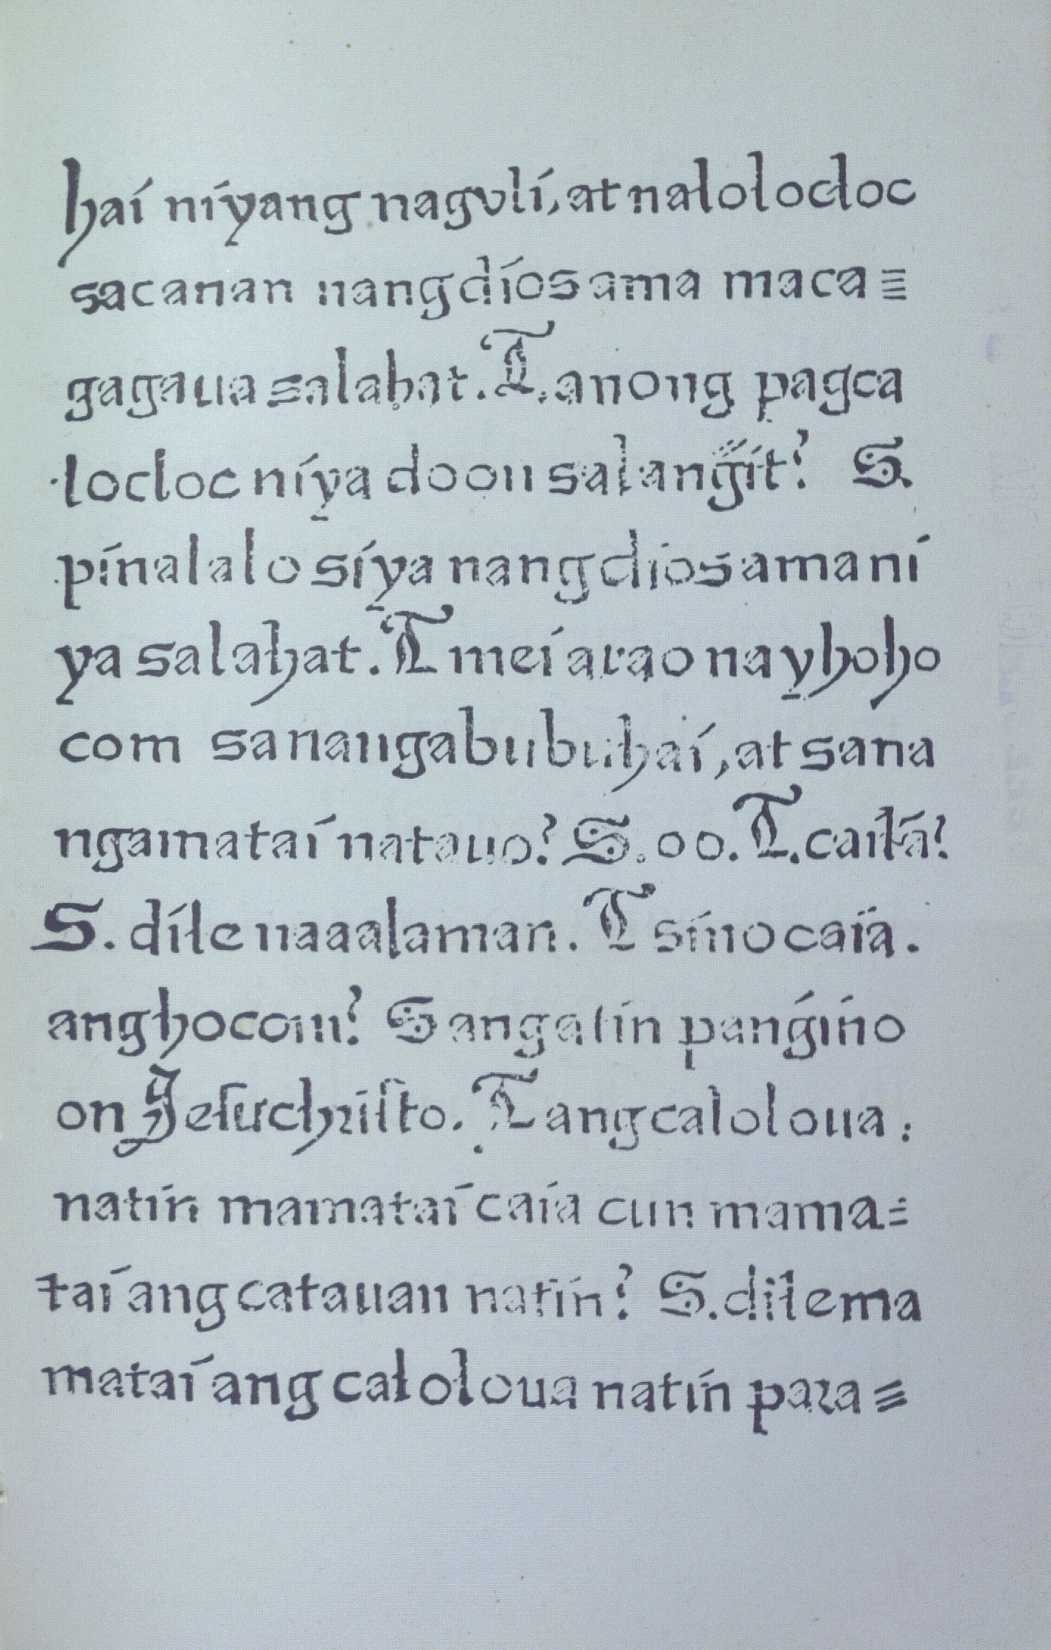 hai niyang naguli, at nalolocloc
sacanan nang dios ama maca=
gagaua salahat. T. anong pagca
locloc niya doon sa lang̃it? S.
pinalalo siya nang dios ama ni
ya sa lahat. T mei arao na yhoho
com sa nangabubuhai, at sa na
ngamatai na tauo? S. oo. T. cailã?
S. di le naaalaman. T sino caïa.
ang hocom? S ang atin pang̃ino
on Jeſuchriſto. T ang caloloua.
natin mamatai caia cun mama=
tai ang catauan natin? S. di le ma
matai ang caloloua natin para=